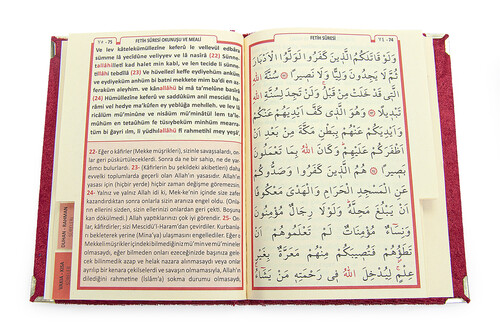 ٧٥ - 75 FETİH SÛRESİ OKUNUŞU VE MEALİ
Ve lev kâtelekümüllezîne keferû le vellevül edbâra
sümme lâ yecidûne veliyyev ve lâ nasîrâ (22) Sünne-
tallâhilletî kad halet min kabl, ve len tecide li sünne-
tillâhi tebdîlâ (23) Ve hüvellezî keffe eydiyehüm anküm
ve eydiyeküm anhüm bi batni mekkete min ba'di en az-
feraküm aleyhim. ve kânallâhü bi mâ ta'melûne basîrâ
(24) Hümüllezîne keferû ve saddûküm anil mescidil ha-
râmi vel hedye ma'kûfen ey yeblüğa mehılleh. ve lev lâ
ricâlüm mü'minûne ve nisâüm mü'minâtül lem ta'le-
mûhüm en tetaûhüm fe tüsıybeküm minhüm mearra-
tüm bi ğayri ılm, li yüdhılallâhü fî rahmetihî mey yeşâ',
22- Eğer o kâfirler (Mekke müşrikleri), sizinle savaşsalardı, on-
lar geri püskürtüleceklerdi. Sonra da ne bir sahip, ne de yar-
dımcı bulurlardı. 23- (Kâfirlerin bu şekildeki akıbetleri) daha
evvelki toplumlarda geçerli olan Allah'ın yasasıdır. Allah'ın
yasası için (hiçbir yerde) hiçbir zaman değişme göremezsin.
24- Yalnız ve yalnız Allah idi ki, Mekke'nin içinde size zafer
kazandırdıktan sonra onlarla sizin aranıza engel oldu. (Onla-
rın ellerini sizden, sizin ellerinizi onlardan geri çekti. Boşuna
kan dökülmedi.) Allah yaptıklarınızı çok iyi görendir. 25- On-
lar, kâfirdirler; sizi Mescidü'l-Haram'dan çevirdiler. Kurbanla-
rı bekleterek yerine (Mina'ya) ulaşmasını engellediler. Eğer o
Mekkeli müşrikler içinde bilmediğiniz mü'min ve mü'mineler
olmasaydı, eğer bilmeden onları ezeceğinizde başınıza gele-
cek bilinmedik azap ve helak nazara alınmasaydı veya onlar
ayrılıp bir kenara çekilselerdi ve savaşın olmamasıyla, Allah'ın
dilediğini rahmetine (İslâm'a) sokma durumu olmasaydı,
FETİH SÛRESİ ٧٤ - 74
وَلَوْ قَاتَلَكُمُ الَّذِينَ كَفَرُوا لَوَلَّوُا الْاَدْبَارَ
ثُمَّ لَا يَجِدُونَ وَلِيًّا وَلَا نَصِيرًا سُنَّةَ اللّٰهِ
الَّتِي قَدْ خَلَتْ مِنْ قَبْلُ وَلَنْ تَجِدَ لِسُنَّةِ اللّٰهِ
تَبْدِيلًا وَهُوَ الَّذِي كَفَّ اَيْدِيَهُمْ عَنْكُمْ
وَاَيْدِيَكُمْ عَنْهُمْ بِبَطْنِ مَكَّةَ مِنْ بَعْدِ اَنْ
اَظْفَرَكُمْ عَلَيْهِمْ وَكَانَ اللّٰهُ بِمَا تَعْمَلُونَ
بَصِيرًا هُمُ الَّذِينَ كَفَرُوا وَصَدُّوكُمْ
عَنِ الْمَسْجِدِ الْحَرَامِ وَالْهَدْيَ مَعْكُوفًا
اَنْ يَبْلُغَ مَحِلَّهُ وَلَوْلَا رِجَالٌ مُؤْمِنُونَ
وَنِسَاءٌ مُؤْمِنَاتٌ لَمْ تَعْلَمُوهُمْ اَنْ
تَطَؤُهُمْ فَتُصِيبَكُمْ مِنْهُمْ مَعَرَّةٌ بِغَيْرِ
عِلْمٍ لِيُدْخِلَ اللّٰهُ فِي رَحْمَتِهِ مَنْ يَشَاءُ